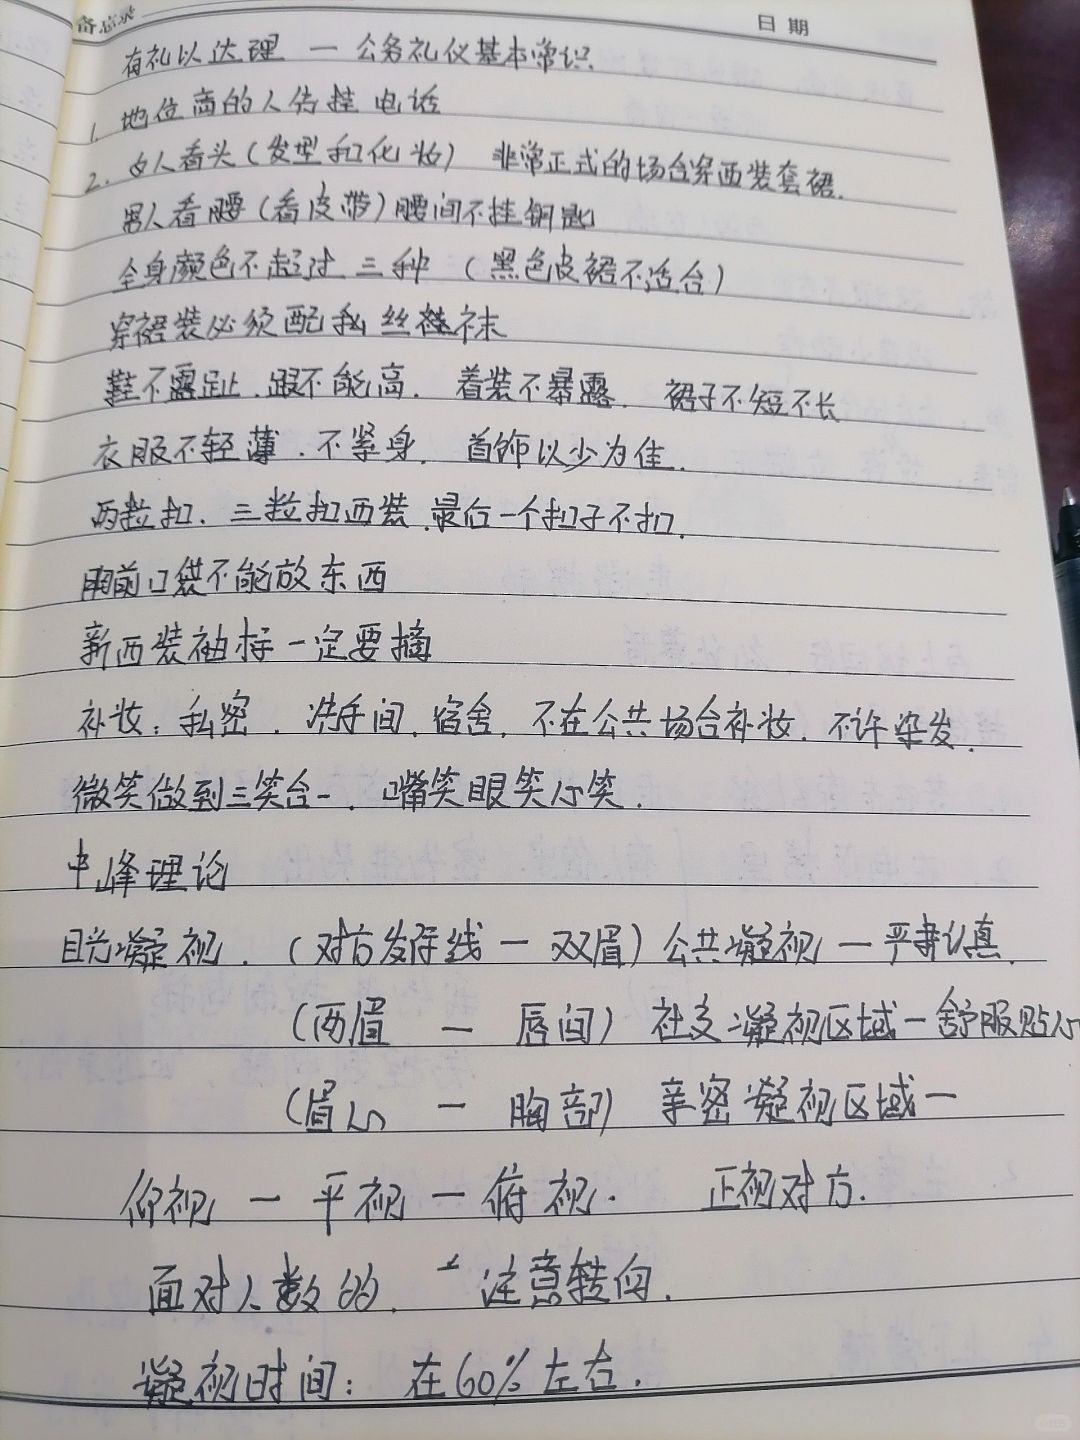 备忘录
日期
有礼以达理 — 公务礼仪基本常识
1. 地位高的人先挂电话
2. 女人看头(发型和化妆) 非常正式的场合穿西装套裙.
男人看腰(看皮带)腰间不挂钥匙
全身颜色不超过三种 (黑色皮裙不适合)
穿裙装必须配 丝袜
鞋不露趾.跟不能高. 着装不暴露. 裙子不短不长
衣服不轻薄.不紧身. 首饰以少为佳.
两粒扣.三粒扣西装.最后一个扣子不扣.
胸前口袋不能放东西
新西装袖标一定要摘
补妆:私密.洗手间.宿舍.不在公共场合补妆.不许染发.
微笑做到三笑合一.嘴笑眼笑心笑.
中峰理论
目光凝视.(对方发际线 — 双眉)公共凝视 — 严肃认真.
(两眉 — 唇间) 社交凝视区域 — 舒服贴心
(眉心 — 胸部) 亲密凝视区域 —
仰视 — 平视 — 俯视. 正视对方.
面对人数的. 注意转向.
凝视时间: 在60%左右.